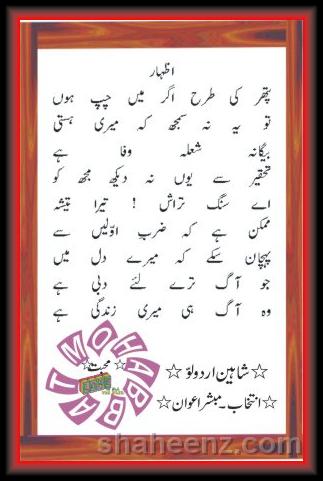 اظہار
پتھر کی طرح اگر میں چپ ہوں
تو یہ نہ سمجھ کہ میری ہستی
بیگانہ شعلہ وفا ہے
تحقیر سے یوں نہ دیکھ مجھ کو
اے سنگ تراش ! تیرا تیشہ
ممکن ہے کہ ضربِ اوّلیں سے
پہچان سکے کہ میرے دل میں
جو آگ ترے لئے دبی ہے
وہ آگ ہی میری زندگی ہے
MOHABBAT
☆ محبت ☆
☆ شاہین اردو لوّ ☆
☆ انتخاب۔ مبشر اعوان ☆
shaheenz.com